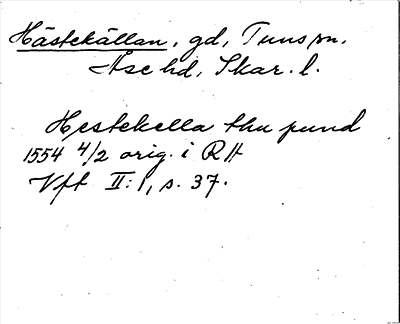 Hästekällan, gd, Tuns sn,
Åse hd, Skar. l.
Hestekella thu pund
1554 4/2 orig. i RA
Vft II:1, s. 37.